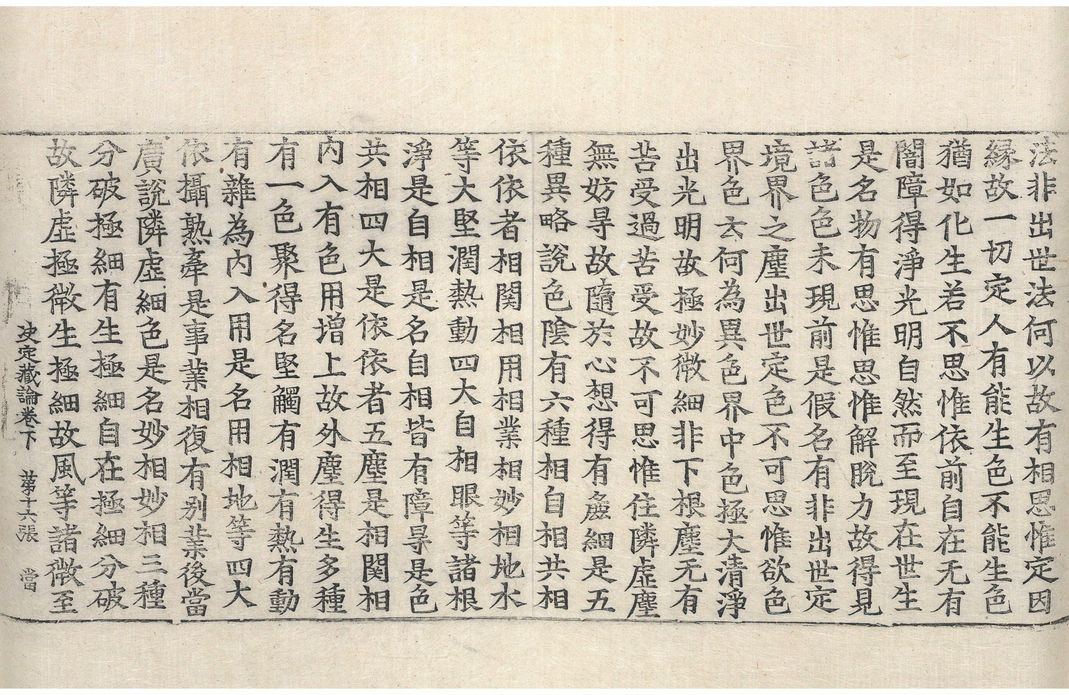 法非出世法何以故有相思惟定因
縁故一切定人有能生色不能生色
猶如化生若不思惟依前自在无有
闇障得淨光明自然而至現在世生
是名物有思惟思惟解脫力故得見
諸色色未現前是假名有非出世定
境界之塵出世定色不可思惟欲色
界色云何為異色界中色極大清淨
出光明故極妙微細非下根塵无有
苦受過苦受故不可思惟住隣虛塵
無妨㝵故隨於心想得有麁細是五
種異略說色陰有六種相自相共相
依依者相関相用相業相妙相地水
等大堅潤熱動四大自相眼等諸根
淨是自相是名自相皆有障㝵是色
共相四大是依依者五塵是相関相
内入有色用增上故外塵得生多種
有一色聚得名堅觸有潤有熱有動
有雜為内入用是名用相地等四大
依攝熟牽是事業相復有别業後當
廣說隣虛細色是名妙相妙相三種
分破極細有生極細自在極細分破
故隣虛極微生極細故風等諸微至
决定藏論卷下 苐十六張 當